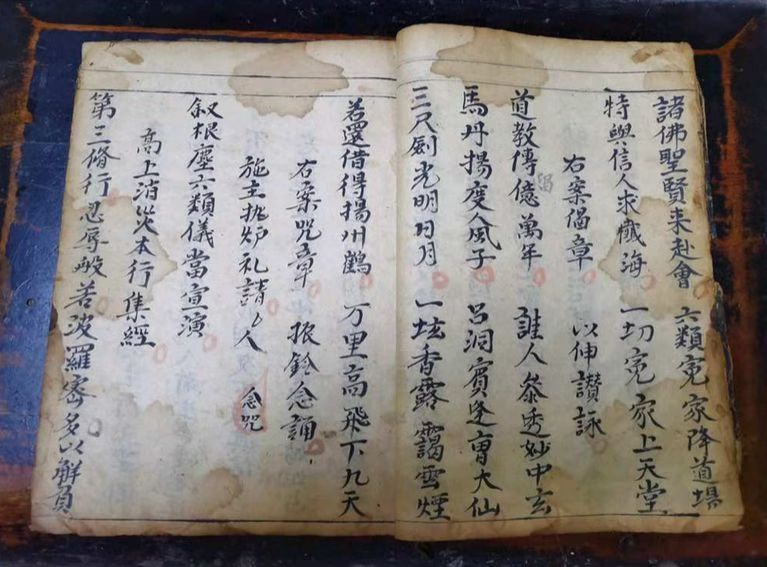 諸佛聖賢来赴會 六類冤家降道場
特與信人求懺海 一切冤家上天堂
右案偈章 以伸讃詠
道教傳億萬年 誰人叅透妙中玄
馬丹揚度人風子 吕洞賓逢曹大仙
三尺劍光明日月 一坛香露靄雲煙
若還借得揚州鶴 万里高飛下九天
右案咒章 振鈴念誦
施主執炉礼請 人 念咒
叙根塵六類儀當宣演
高上消灾本行集經
第三脩行忍辱般若波羅密多以解負